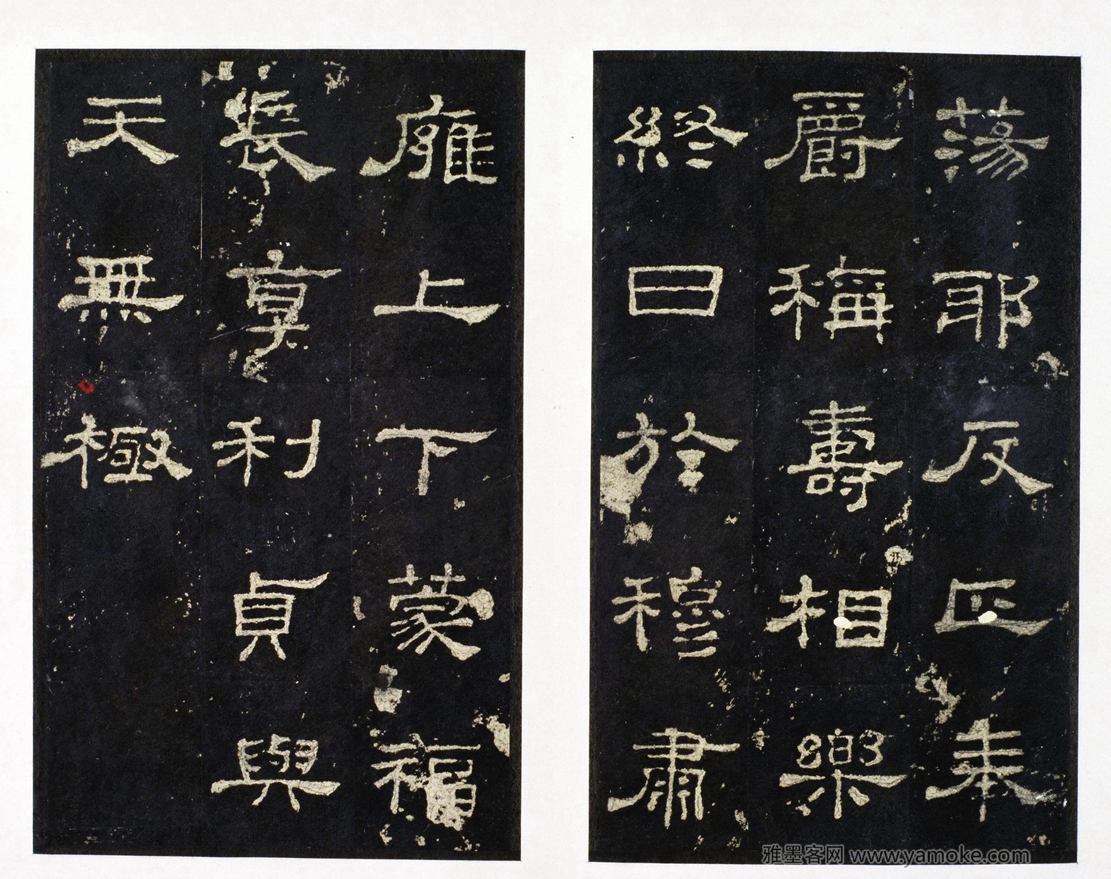 蕩耶反正奉
爵稱壽相樂
終日於穆肅
雍上下蒙福
長享利貞與
天無極
雅墨客网 www.yamoke.com